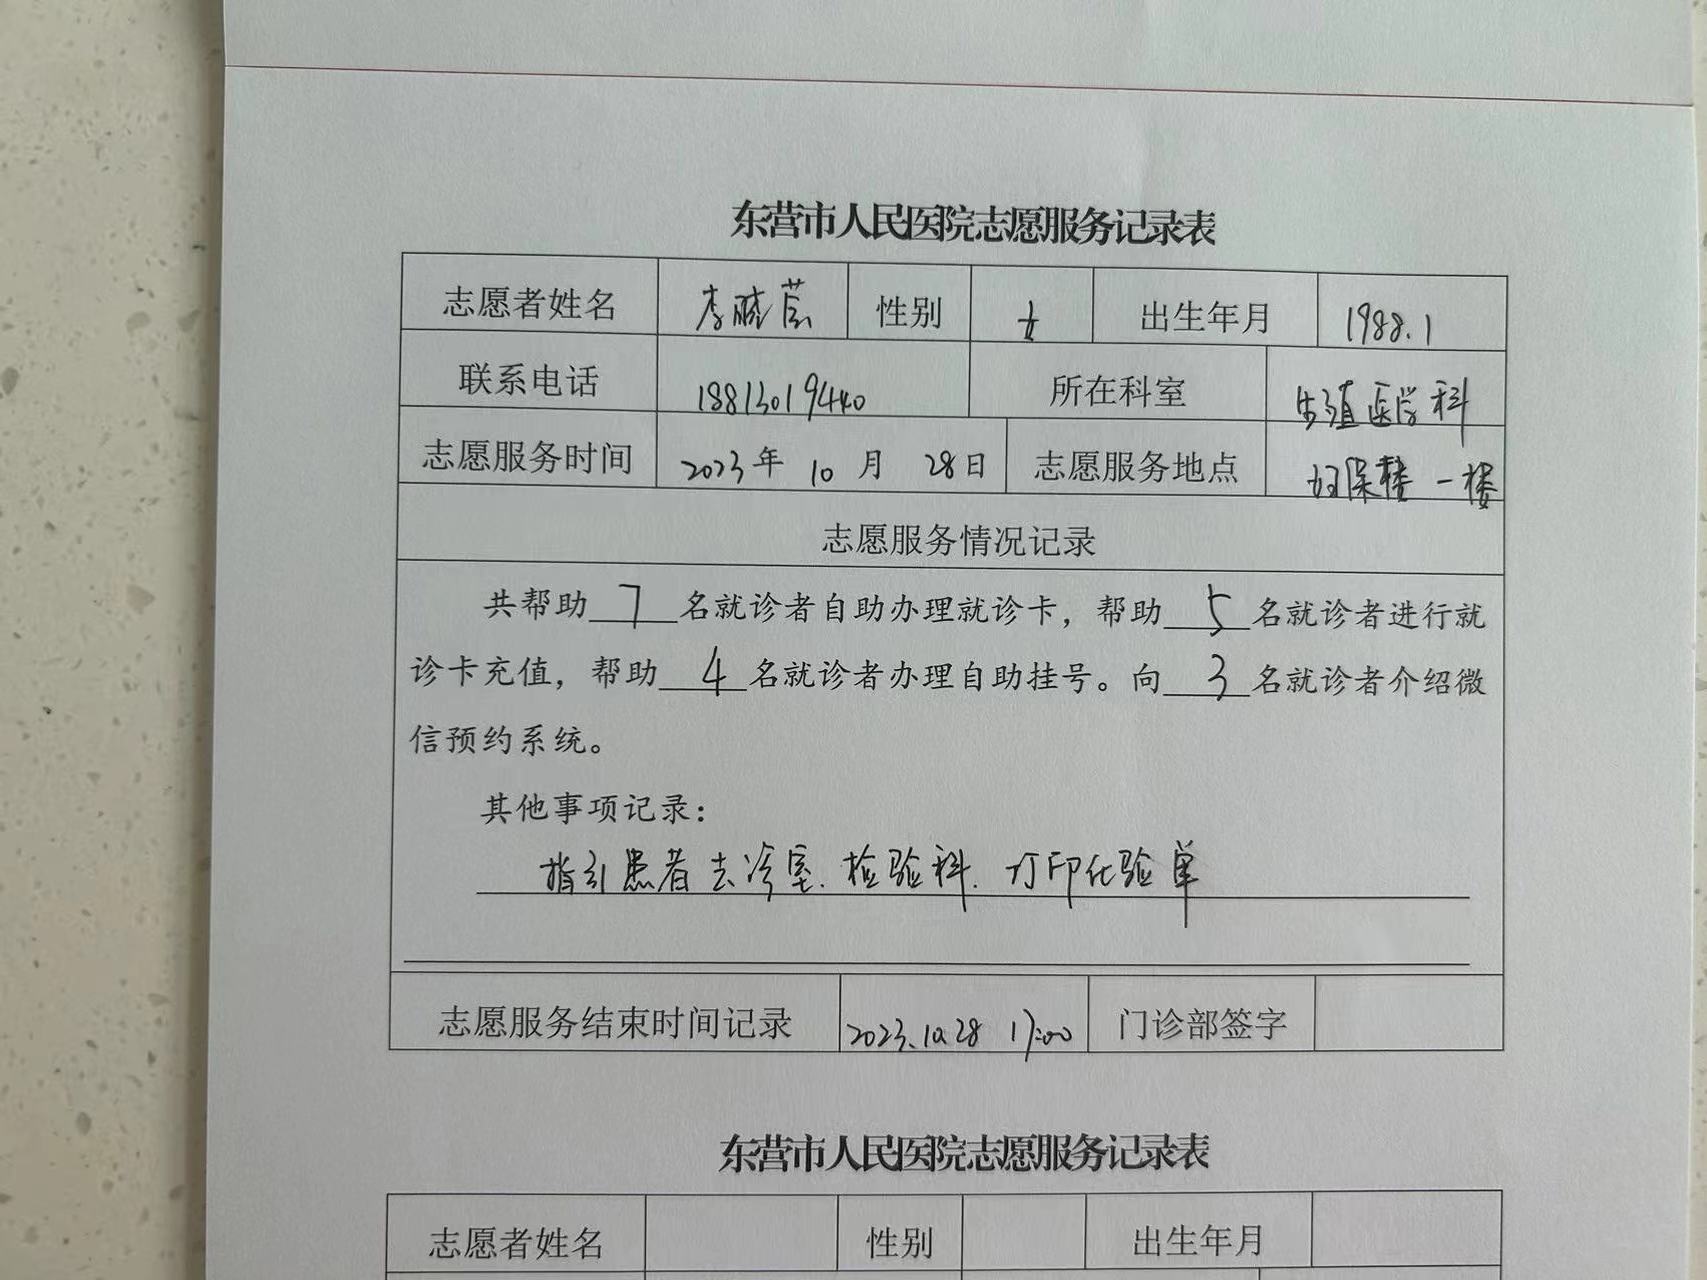 东营市人民医院志愿服务记录表
志愿者姓名 李晓 性别 女 出生年月 1988.1
联系电话 18813019440 所在科室 生殖医学科
志愿服务时间 2023年 10 月 28日 志愿服务地点 妇保楼一楼
志愿服务情况记录
共帮助 7 名就诊者自助办理就诊卡，帮助 5 名就诊者进行就
诊卡充值，帮助 4 名就诊者办理自助挂号。向 3 名就诊者介绍微
信预约系统。
其他事项记录：
指引患者去诊室、检验科、打印化验单
志愿服务结束时间记录 2023.10.28 17:00 门诊部签字
东营市人民医院志愿服务记录表
志愿者姓名 性别 出生年月